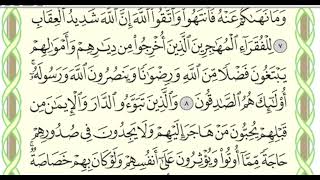 وَمَا نَهَىٰكُمْ عَنْهُ فَٱنتَهُوا۟ وَٱتَّقُوا۟ ٱللَّهَ إِنَّ ٱللَّهَ شَدِيدُ ٱلْعِقَابِ
٧ لِلْفُقَرَآءِ ٱلْمُهَٰجِرِينَ ٱلَّذِينَ أُخْرِجُوا۟ مِن دِيَٰرِهِمْ وَأَمْوَٰلِهِمْ
يَبْتَغُونَ فَضْلًا مِّنَ ٱللَّهِ وَرِضْوَٰنًا وَيَنصُرُونَ ٱللَّهَ وَرَسُولَهُۥٓ
أُو۟لَٰٓئِكَ هُمُ ٱلصَّٰدِقُونَ ٨ وَٱلَّذِينَ تَبَوَّءُو ٱلدَّارَ وَٱلْإِيمَٰنَ مِن
قَبْلِهِمْ يُحِبُّونَ مَنْ هَاجَرَ إِلَيْهِمْ وَلَا يَجِدُونَ فِى صُدُورِهِمْ
حَاجَةً مِّمَّآ أُوتُوا۟ وَيُؤْثِرُونَ عَلَىٰٓ أَنفُسِهِمْ وَلَوْ كَانَ بِهِمْ خَصَاصَةٌ